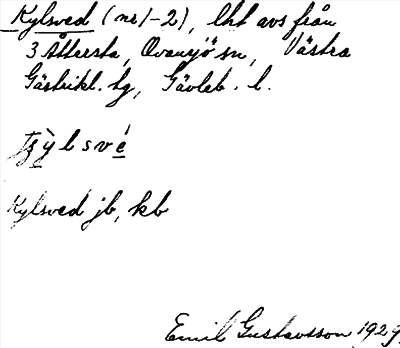 Kylsved (nr 1-2), lht avs från
3 Åttersta, Ovansjö sn, Västra
Gästrikl. tg, Gävleb. l.
Kylsved jb, kb
Emil Gustavsson 1929.